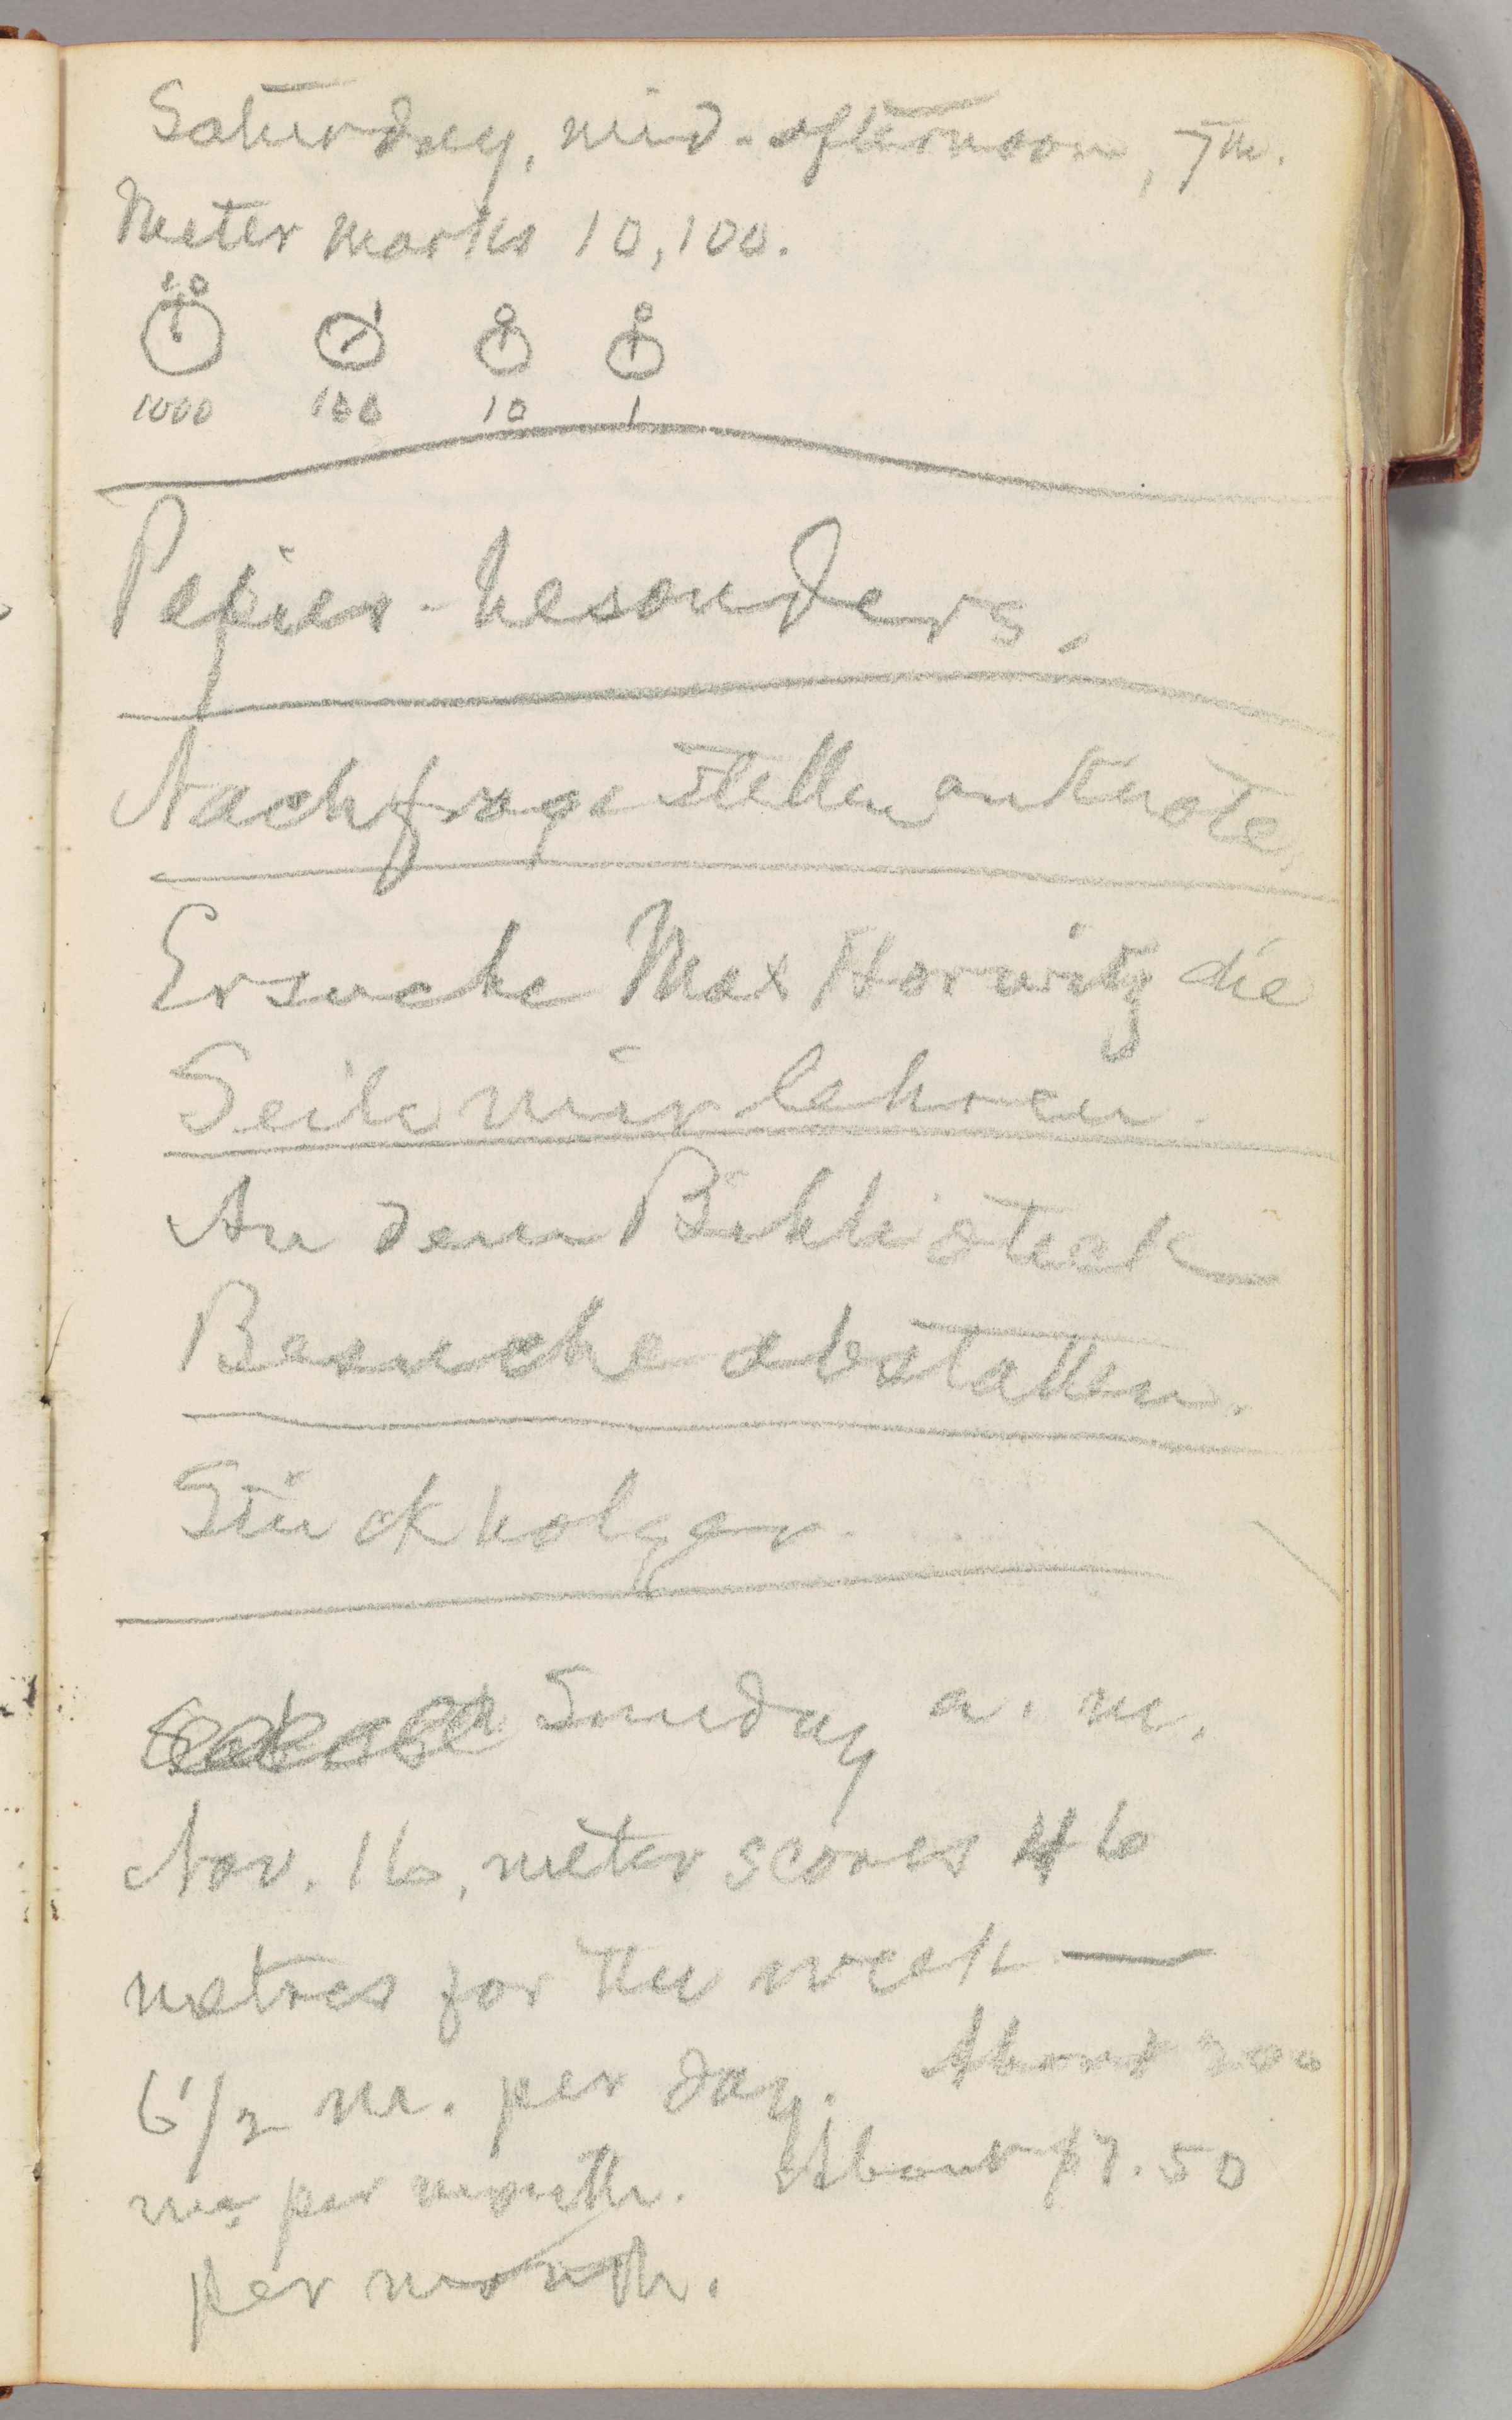 Saturday, mid-afternoon, 7th.
Meter marks 10,100.
10 1 0 0
1000 100 10 1
Papier-besonders.
Nachfrage stellen
Ersuche Max Horwitz die
Seile mir lehren.
An dem Bibliotek
Besuche abstatten.
Stückholzer.
Sunday a. m.
Nov. 16, meter scores 46
metres for the week —
6 1/2 m. per day. About 200
m. per month. About $7.50
per month.